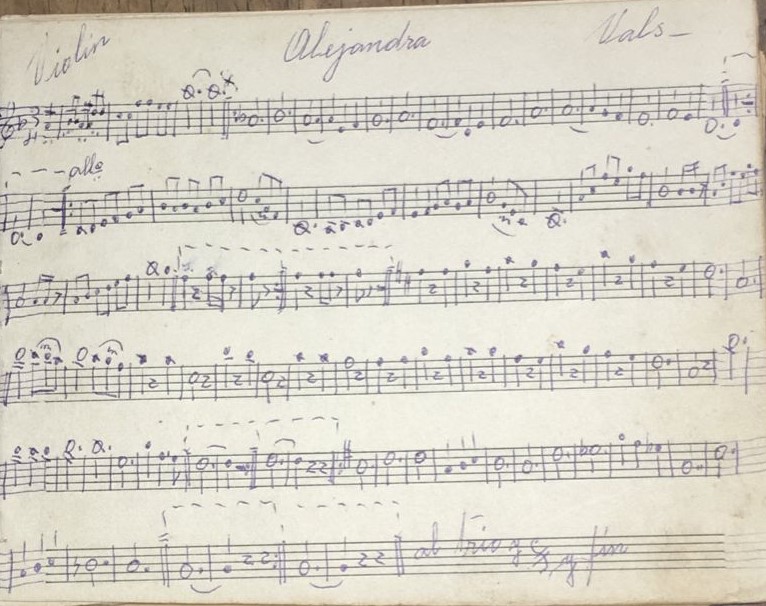 Violin Alejandra Vals
allo
al trio y y fin